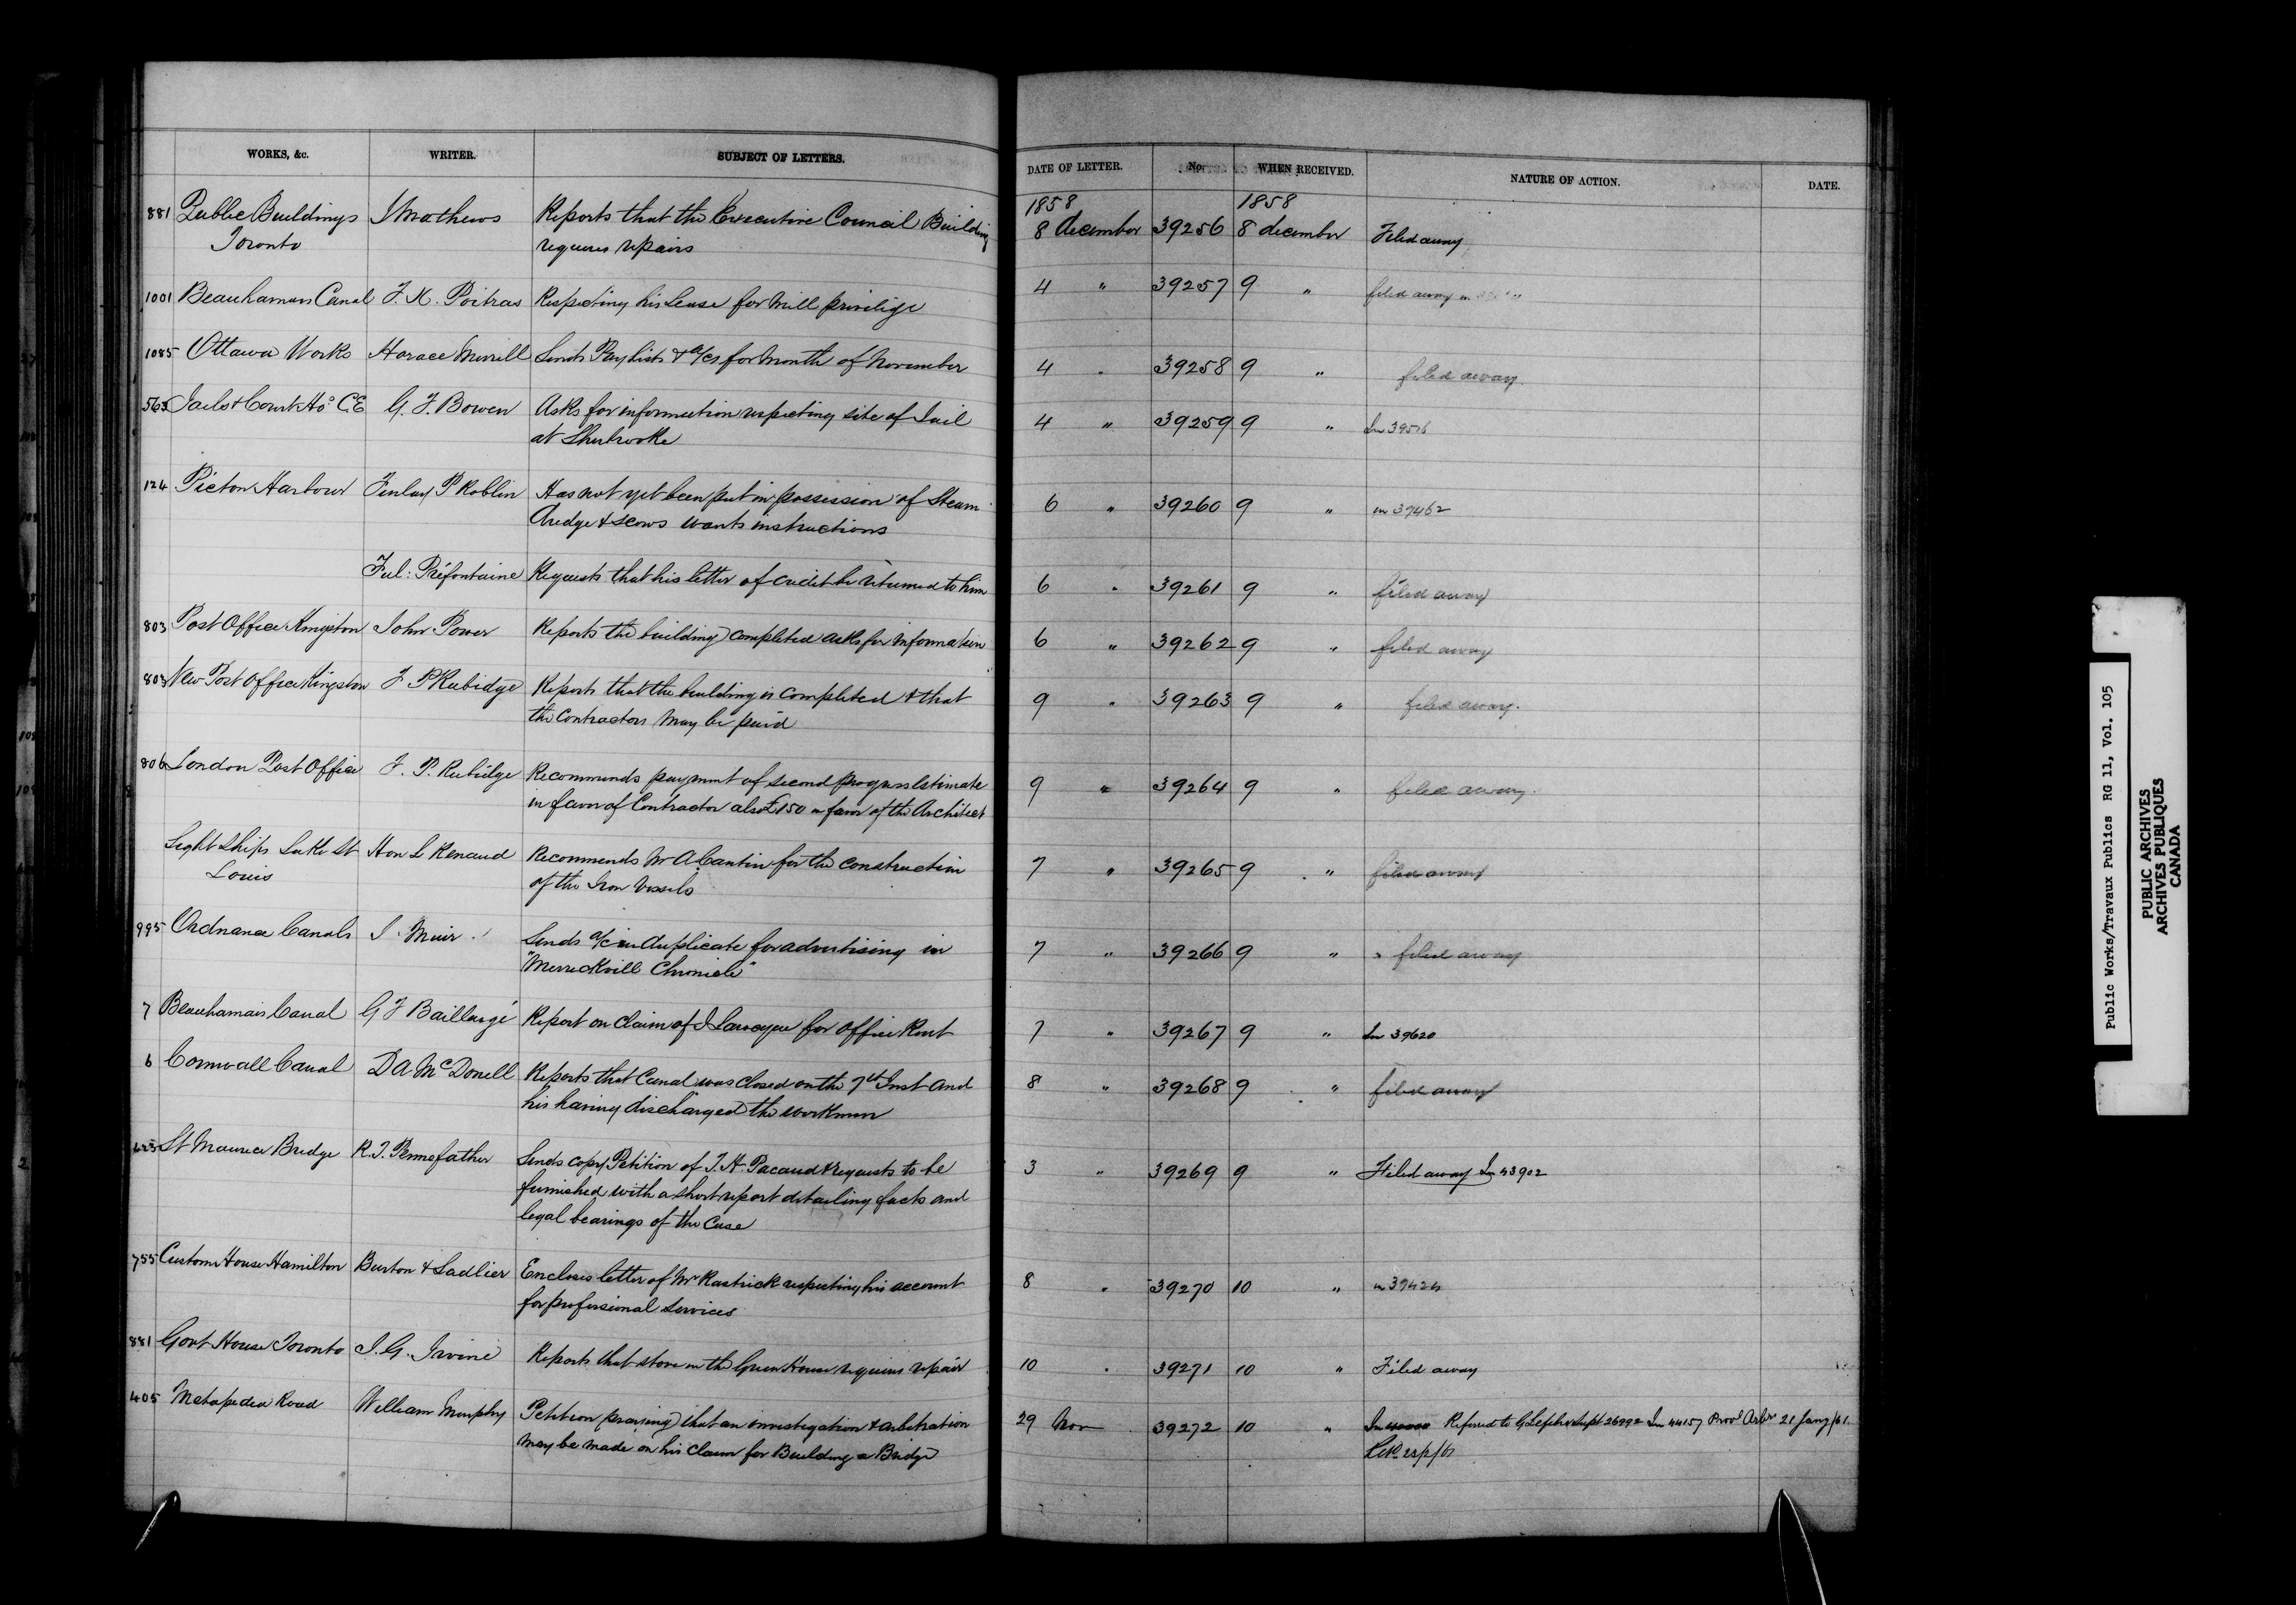 WORKS, &c. WRITER. SUBJECT OF LETTERS. DATE OF LETTER. No. WHEN RECEIVED. NATURE OF ACTION. DATE.
1858 1858
881 Public Buildings J Mathews Reports that the Executive Council Building 8 december 39256 8 december Filed away
Toronto requires repairs
1001 Beauharnois Canal J. K. Poitras Respecting his Lease for Mill privilege 4 " 39257 9 " filed away
1085 Ottawa Works Horace Merrill Sends Pay lists & a/cs for Month of November 4 " 39258 9 " filed away.
563 Jails & Court Hos C.E G. F. Bowen Asks for information respecting site of Jail 4 " 39259 9 " In
at Sherbrooke
124 Picton Harbour Finlay P Roblin Has not yet been put in possession of Steam 6 " 39260 9 " in 39462
dredge & scows wants instructions
Ful: Préfontaine Requests that his letter of credit be returned to him 6 " 39261 9 " filed away
803 Post Office Kingston John Power Reports the building completed asks for information 6 " 39262 9 " filed away
803 New Post Office Kingston F P Rubidge Reports that the building is completed & that 9 " 39263 9 " filed away.
the Contractors may be paid
806 London Post Office F. P. Rubidge Recommends payment of second progress Estimate 9 " 39264 9 " filed away.
in favor of Contractor also £150 in favor of the Architect
Light Ships Lake St Hon L Renaud Recommends Mr A Cantin for the construction 7 " 39265 9 " filed away
Louis of the Iron Vessels
995 Ordnance Canals J. Muir Sends a/c in duplicate for advertising in 7 " 39266 9 " filed away
"Merrickvill Chronicle"
7 Beauharnais Canal G F Baillargé Report on claim of J Larocque for office Rent 7 " 39267 9 " In 39620
6 Cornwall Canal D A McDonell Reports that Canal was closed on the 7th Inst and 8 " 39268 9 " filed away
his having discharged the workmen
St Maurice Bridge R. T. Pennefather Sends copy Petition of J. H. Pacaud & requests to be 3 " 39269 9 " Filed away In 43902
furnished with a short report detailing facts and
legal bearings of the Case
755 Custom House Hamilton Burton & Sadlier Encloses letter of Mr Rastrick respecting his account 8 " 39270 10 " in 39424
for professional Services
881 Govt House Toronto J. G. Irvine Reports that stove in the Green House requires repair 10 " 39271 10 " Filed away
405 Metapedia Road William Murphy Petition praying that an investigation & arbitration 29 Nov 39272 10 " In Referred to G Lefebvre Supt 26992 In 44157 Provl Arbrs 21 Jany/61.
may be made on his claim for Building a Bridge
Public Works/Travaux Publics RG 11, Vol. 105
PUBLIC ARCHIVES
ARCHIVES PUBLIQUES
CANADA